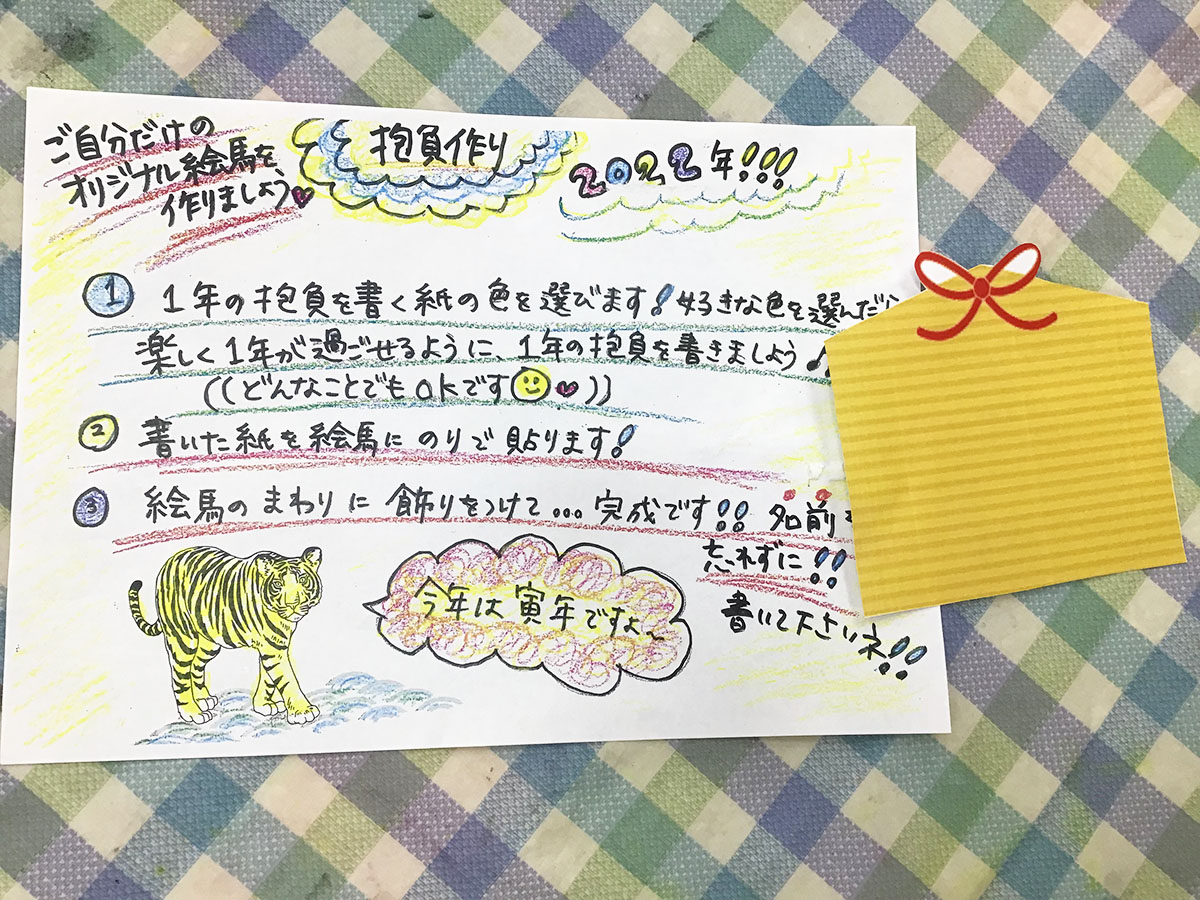 ご自分だけの
オリジナル絵馬を
作りましょう♥
抱負作り
2022年!!!
① 1年の抱負を書く紙の色を選びます!好きな色を選んだ
楽しく1年が過ごせるように、1年の抱負を書きましょう♪
((どんなことでもOKです☺♥))
② 書いた紙を絵馬にのりで貼ります!
③ 絵馬のまわりに飾りをつけて…完成です!! 名前
忘れずに!!
書いて下さいネ!!
今年は寅年ですよ〜